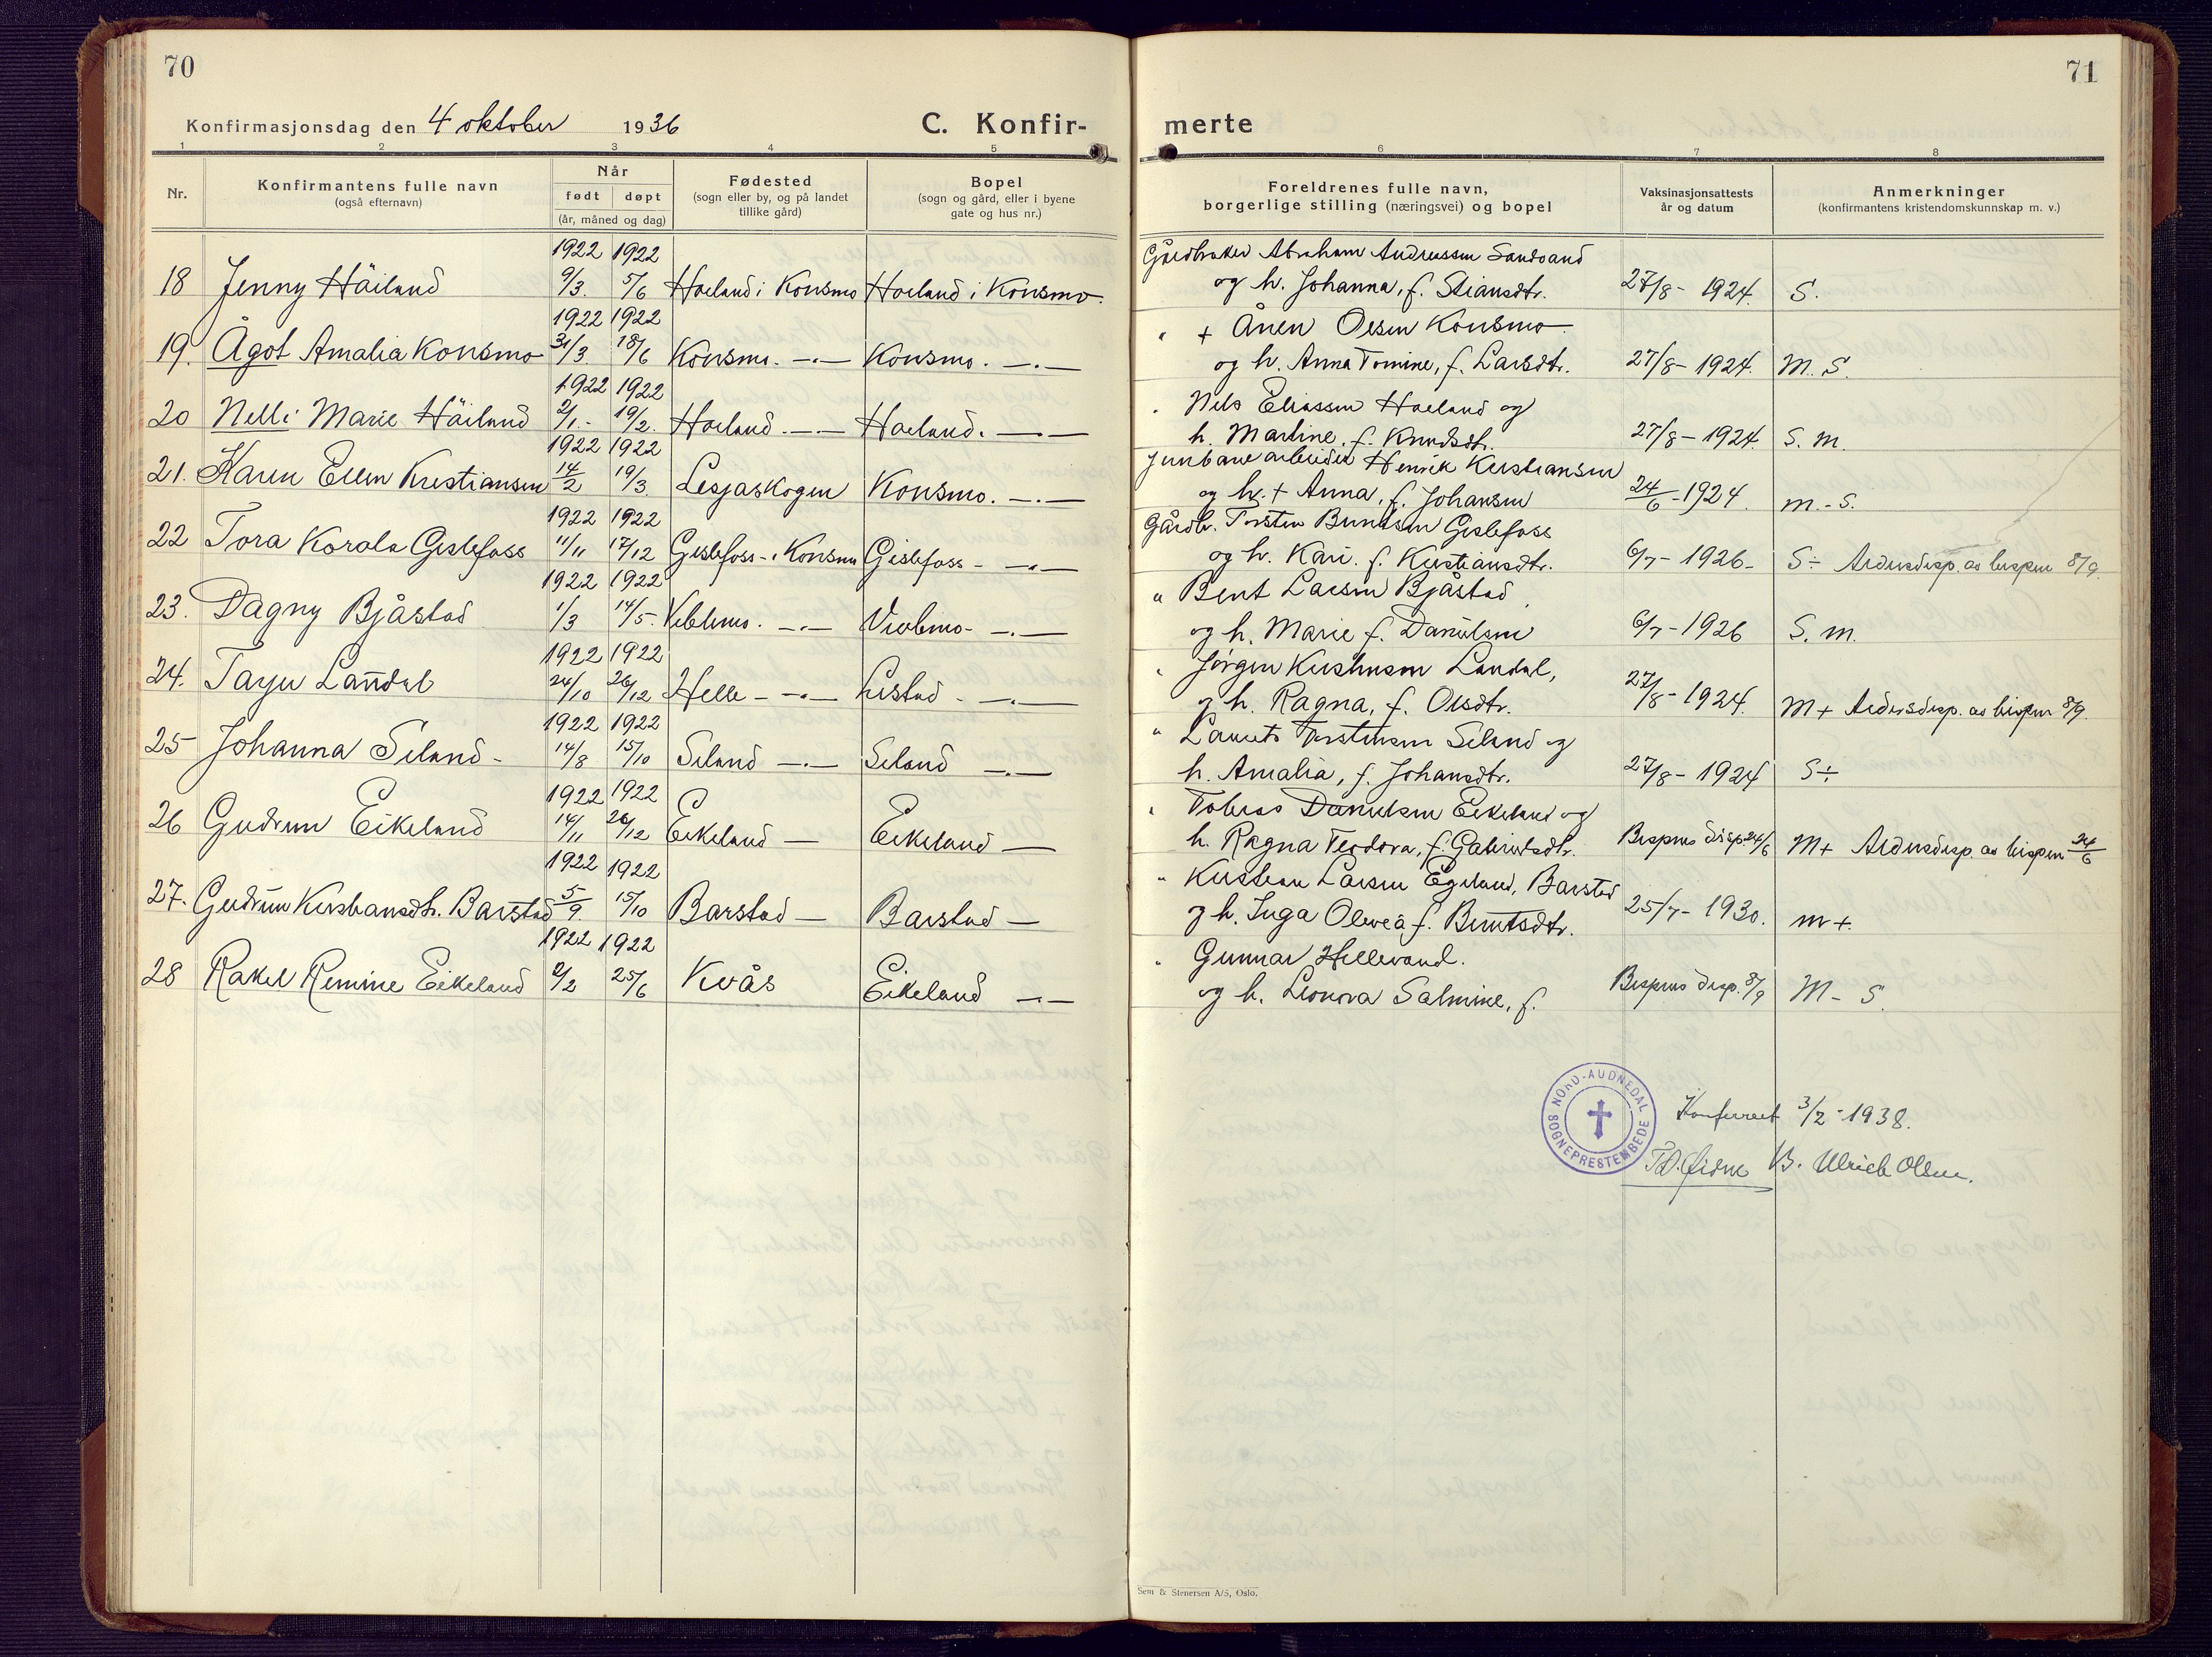 70
71
Konfirmasjonsdag den 4 oktober 1936
C. Konfir-
merte
1 2 3 4 5 6 7 8
Nr.
Konfirmantens fulle navn
(også efternavn)
Når
født døpt
(år, måned og dag)
Fødested
(sogn eller by, og på landet
tillike gård)
Bopel
(sogn og gård, eller i byene
gate og hus nr.)
Foreldrenes fulle navn,
borgerlige stilling (næringsvei) og bopel
Vaksinasjonsattests
år og datum
Anmerkninger
(konfirmantens kristendomskunnskap m. v.)
1922 1922 Gårdbruker Abraham Andreassen Sandvand
18 Jenny Häiland 9/3. 5/6 Hæland i Konsmo Hæland i Konsmo. og h. Johanna, f. Stiansdtr. 27/8- 1924. S.
1922 1922 " + Ånen Olsen Konsmo
19. Ågot Amalia Konsmo 31/3. 18/6 Konsmo. —.— Konsmo. —.— og h. Anna Tomine, f. Larsdtr. 27/8- 1924. M. S.
1922 1922 " Nels Eliassen Hæland og
20 Nelli Marie Häiland 2/1.- 19/2. Hæland. —.— Hæland. —.— h. Martine, f. Knudsdtr. 27/8- 1924. S. M.
1922 1922 Jernbanearbeider Henrik Kristiansen
21. Karen Ellen Kristiansen 14/2 19/3. Lesjaskogen Konsmo. —.— og h. + Anna, f. Johansen 24/6-1924. M.-S.
1922 1922 Gårdbr. Torsten Berntsen Gislefoss
22 Tora Korala Gislefoss 11/11 17/12 Gislefoss - i Konsmo Gislefoss - —.— og h. Kari. f. Kristiansdtr. 6/7- 1926- S÷ Aldersdisp. av bispen 8/9.
1922 1922 " Bent Larsen Bjåstad
23. Dagny Bjåstad 1/3 14/5. Viblemo. —.— Viblemo- —.— og h. Marie f. Danielsen 6/7-1926 S. M.
1922 1922 " Jørgen Kristensen Landal,
24. Tayu Landal 24/10 26/12 Helle - —.— Listad - —.— og h. Ragna, f. Olsdtr. 27/8- 1924. M+ Aldersdisp. av bispen 8/9.
1922 1922 " Laurits Torstensen Seland og
25 Johanna Seland - 14/8 15/10 Seland —.— Seland —.— h. Amalia, f. Johansdtr. 27/8- 1924 S÷
1922 1922 " Tobias Danielsen Eikeland og
26 Gudrun Eikeland 14/11 26/12 Eikeland — Eikeland — h. Ragna Teodora, f. Gabrielsdtr. Bispens disp. 24/6 M+ Aldersdisp. av bispen 24/6
1922 1922 " Kristian Larsen Egeland, Barstad
27. Gudrun Kristiansdtr. Barstad 5/9. 15/10 Barstad — Barstad — og h. Inga Olevea f. Berntsdtr. 25/7- 1930. M+.
1922 1922 " Gunnar Hellevand.
28 Rakel Remine Eikeland 2/2 25/6 Kvås Eikeland —.— og h. Leonora Salmine, f. Bispens disp. 8/9 M- S.
NORD-AUDNEDAL SOGNEPRESTEMBEDE
Konferert 3/2-1938.
B. Ulrich Olsen.
Sem & Stenersen A/S, Oslo.